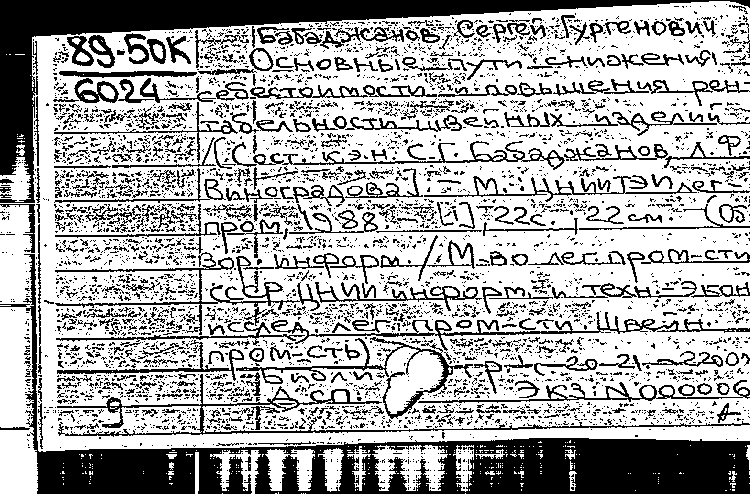 89-50К
6024
Бабаджанов, Сергей Гургенович
Основные пути снижения
себестоимости и повышения рен-
табельности швейных изделий
/[Сост. к.э.н. С.Г. Бабаджанов, Л.Ф.
Виноградова]. - М.: ЦНИИТЭИлег-
пром, 1988. - [1], 22с.; 22см. - (Об
зор. информ. / М-во лег. пром-сти
СССР, ЦНИИ информ. и техн.-экон
исслед. лег. пром-сти. Швейн.
пром-сть)
Библи
Д.сп. ЭКЗ. N 000006
9